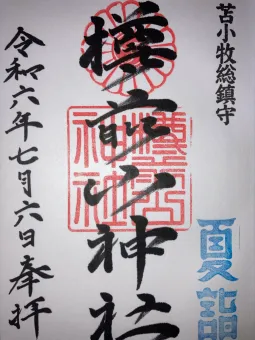 苫小牧総鎮守
樽前山神社
夏詣
令和六年七月六日奉拝
樽前山神社